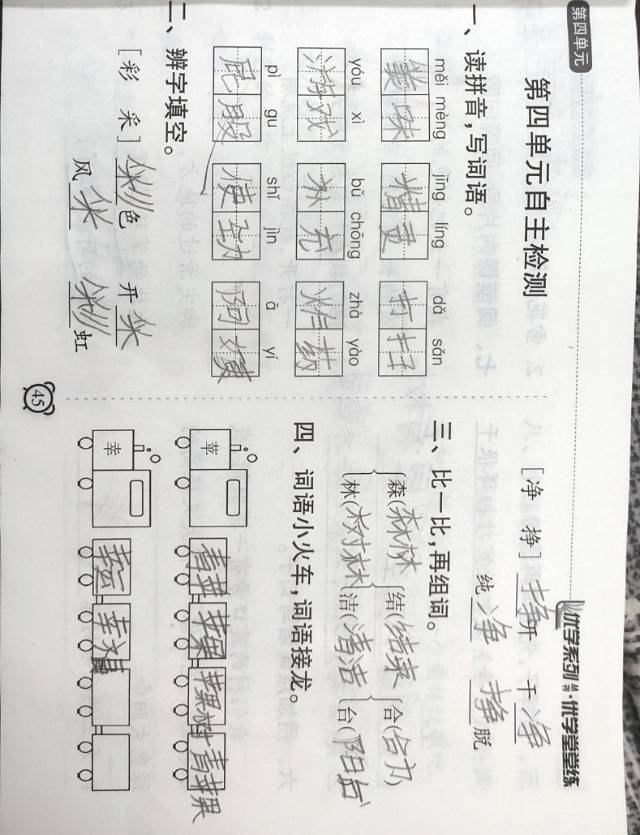 第四单元
优学系列·优学堂堂练
第四单元自主检测
一、读拼音,写词语。
měi mèng jīng líng dǎ sǎn
美 精灵 打扫
yóu xì bǔ chōng zhà yào
游戏 补充 炸药
pì gu shǐ jìn ā yí
屁股 使劲 阿姨
二、辨字填空。
[彩 采] 彩色 开采
风采 彩虹
[净 挣] 挣开 干净
纯净 挣脱
三、比一比,再组词。
森(森林) 结(结束) 合(合力)
林(树林) 洁(清洁) 台(阳台)
四、词语小火车,词语接龙。
苹 青苹 苹果 苹果树 青苹果
幸 幸运
45